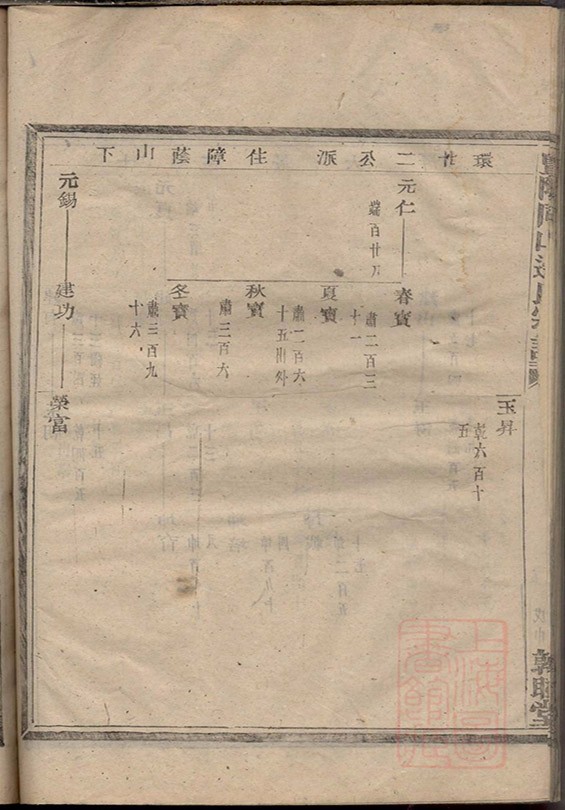 環性二公派住障蔭山下
玉昇
彰六百十
五
元仁
端百廿九
春寳
肅二百三
十一
夏寳
肅二百六
十五出外
秋寳
肅三百六
冬寳
肅三百九
十六
元錫
建功
榮富
敦睦堂
上海圖書館藏